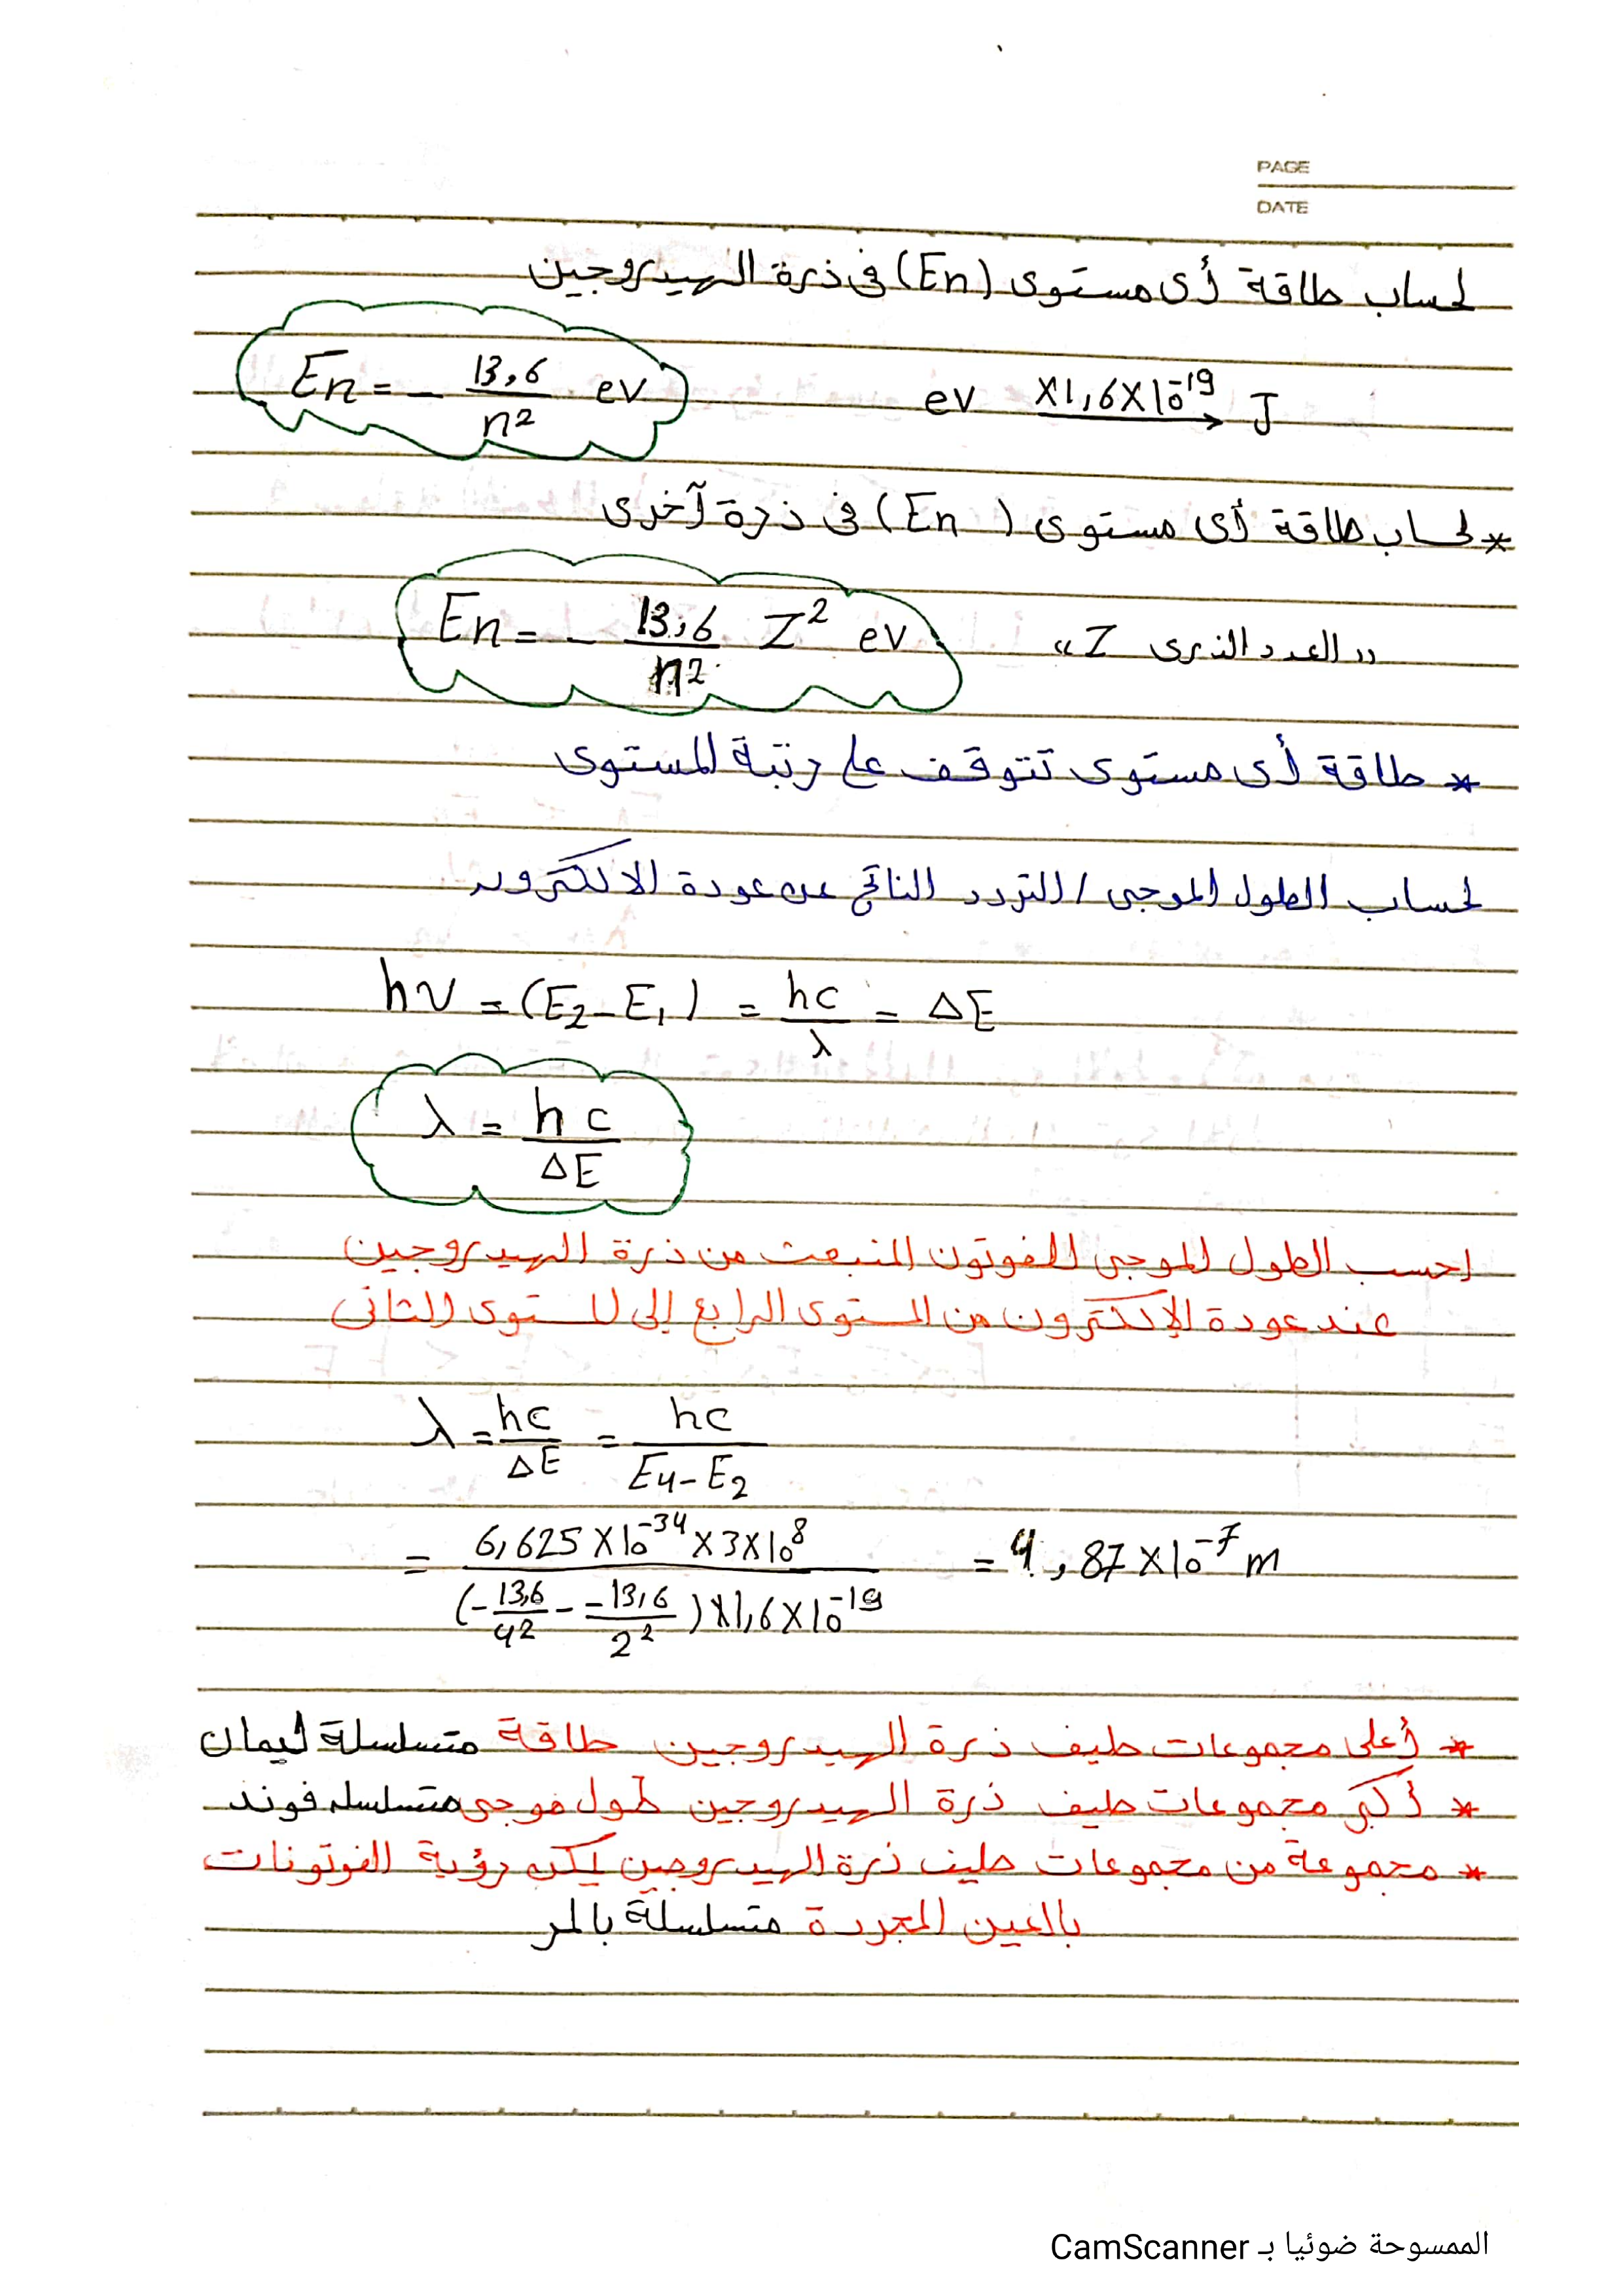 PAGE
DATE
لحساب طاقة أى مستوى (En) فى ذرة الهيدروجين
En = - 13,6 / n² ev      ev ×1,6×10⁻¹⁹ → J
* لحساب طاقة أى مستوى (En ) فى ذرة آخرى
En = - 13,6 / n² Z² ev      " العدد الذرى Z "
* طاقة أى مستوى تتوقف على رتبة المستوى
لحساب الطول الموجى / التردد الناتج عن عودة الالكترون
hν = (E₂ - E₁) = hc / λ = ΔE
λ = h c / ΔE
احسب الطول الموجى للفوتون المنبعث من ذرة الهيدروجين
عند عودة الإلكترون من المستوى الرابع إلى المستوى الثانى
λ = hc / ΔE = hc / E₄ - E₂
= 6,625 × 10⁻³⁴ × 3 × 10⁸ / (- 13,6 / 4² - - 13,6 / 2²) × 1,6 × 10⁻¹⁹ = 4,87 × 10⁻⁷ m
* أعلى مجموعات طيف ذرة الهيدروجين طاقة متسلسلة ليمان
* أكبر مجموعات طيف ذرة الهيدروجين طول موجى متسلسله فوند
* مجموعة من مجموعات طيف ذرة الهيدروجين يمكن رؤية الفوتونات
بالعين المجردة متسلسلة بالمر
الممسوحة ضوئيا بـ CamScanner